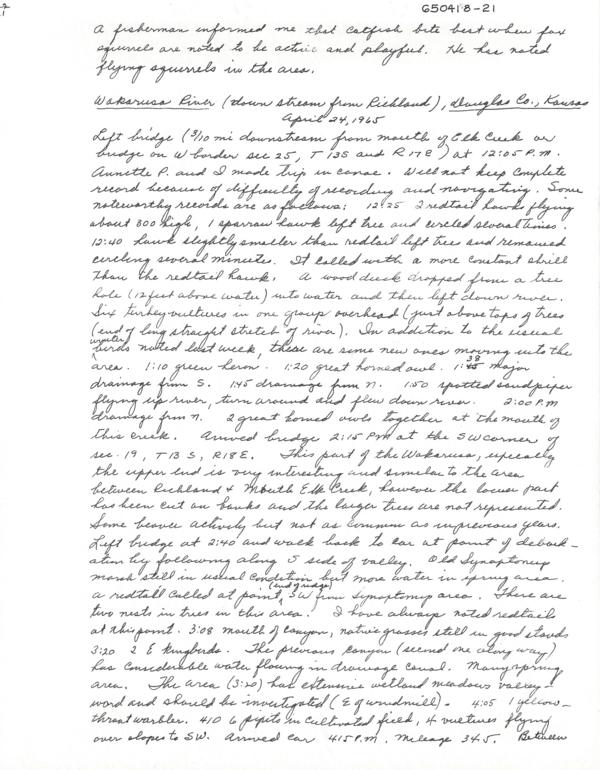 G50418-21
A fisherman informed me that catfish bite best when fox
squirrels are noted to be active and playful. He has noted
flying squirrels in the area.
Wakarusa River (down stream from Richland), Douglas Co., Kansas
April 24, 1965
Left bridge (3/10 mi downstream from mouth of Elk Creek or
bridge on W border sec 25, T 13S and R 17E) at 12:05 P.M.
Annette P. and I made trip in canoe. Will not keep complete
record because of difficulty of recording and navigating. Some
noteworthy records are as follows: 12:25 2 redtail hawks flying
about 300 high, 1 sparrow hawk left tree and circled several times.
12:40 hawk slightly smaller than redtail left tree and remained
circling several minutes. It called with a more constant shrill
than the redtail hawk. A wood duck dropped from a tree
hole (12 feet above water) into water and then left down river.
Six turkey-vultures in one group overhead (just above tops of trees
(end of long straight stretch of river). In addition to the usual
winter birds noted last week, these are some new ones moving into the
area. 1:10 green heron. 1:20 great horned owl. 1:38 major
drainage from S. 1:45 drainage from N. 1:50 spotted sandpiper
flying up river, turn around and flew down river. 2:00 P.M
drainage from N. 2 great horned owls together at the mouth of
this creek. Arrived bridge 2:15 PM at the SW corner of
sec. 19, T 13 S, R 18 E. This part of the Wakarusa, especially
the upper end is very interesting and similar to the area
between Richland & Mouth Elk Creek, however the lower part
has been cut on banks and the larger trees are not represented.
Some beaver activity but not as common as in previous years.
Left bridge at 2:40 and walk back to car at point of debark-
ation by following along S side of valley. Old Synaptomys
marsh still in usual condition but more water in spring area.
A redtail called at point (end of ridge) SW from Synaptomys area. There are
two nests in trees in this area. I have always noted redtails
at this point. 3:08 mouth of canyon, native grasses still in good stands
3:20 2 E kingbirds. The previous canyon (second one along way)
has considerable water flowing in drainage canal. Many spring
area. The area (3:20) has extensive wetland meadows valley-
word and should be investigated (E of windmill). 4:05 1 yellow-
throat warbler. 410 6 pipits in cultivated field, 4 vultures flying
over slopes to SW. Arrived car 415 P.M. Mileage 34.5. Between